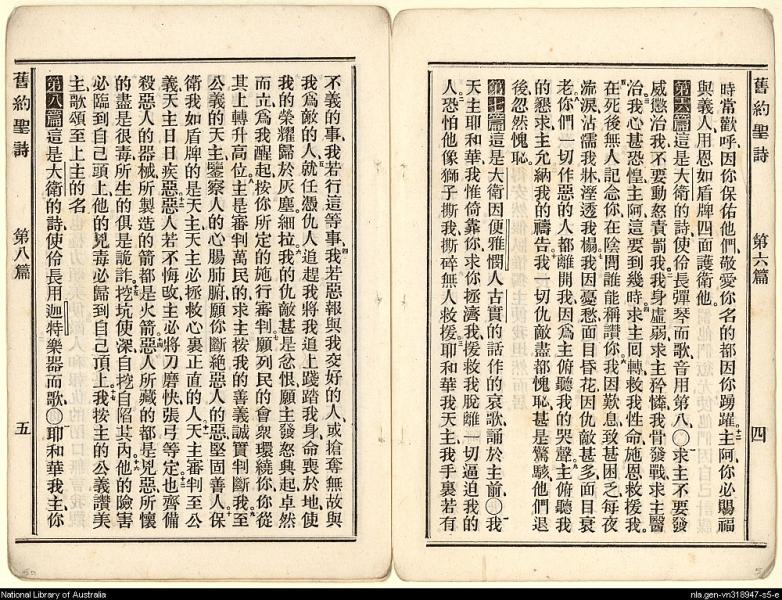 舊約聖詩　第六篇　四
時常歡呼因你保佑他們敬愛你名的都因你踴躍十二主阿你必賜福
與義人用恩如盾牌四面護衛他
第六篇這是大衛的詩使伶長彈琴而歌音用第八〇一求主不要發
威懲治我不要動怒責罰我二我身虛弱求主矜憐我骨發戰求主醫
治我三我心甚恐惶主阿這要到幾時四求主回轉救我性命施恩救援我五
在死後無人記念你在陰間誰能稱讚你六我因歎息致甚困乏每夜
流淚沾濡我牀溼透我榻七我因憂愁面目昏花因仇敵甚多面目衰
老八你們一切作惡的人都離開我因為主俯聽我的哭聲九主俯聽我
的懇求主允納我的禱告十我一切仇敵盡都愧恥甚是驚駭他們退
後忽然愧恥
第七篇這是大衛因便雅憫人古實的話作的哀歌誦於主前〇一我
天主耶和華我惟倚靠你求你拯濟我援救我脫離一切逼迫我的
人二恐怕他像獅子撕我撕碎無人救援三耶和華我天主我手裏若有
不義的事我若行這等事四我若惡報與我交好的人或搶奪無故與
我為敵的人五就任憑仇人追趕我將我追上踐踏我身命喪於地使
我的榮耀歸於灰塵細拉六我的仇敵甚是忿恨願主發怒興起卓然
而立為我醒起按你所定的施行審判七願列民的會衆環繞你你從
其上轉升高位八主是審判萬民的求主按我的善義誠實判斷我九至
公義的天主鑒察人的心腸肺腑願你斷絕惡人的惡堅固善人十保
衛我如盾牌的是天主天主必拯救心裏正直的人十一天主審判至公
義天主日日疾惡十二惡人若不悔改主必將刀磨快張弓等定十三也齊備
殺惡人的器械所製造的箭都是火箭十四惡人所藏的都是兇惡所懷
的盡是很毒所生的俱是詭詐十五挖坑使深自挖自陷其內十六他的險害
必臨到自己頭上他的兇毒必歸到自己頂上十七我按主的公義讚美
主歌頌至上主的名
第八篇這是大衛的詩使伶長用迦特樂器而歌〇一耶和華我主你
舊約聖詩　第八篇　五
National Library of Australia
nla.gen-vn318947-s5-e